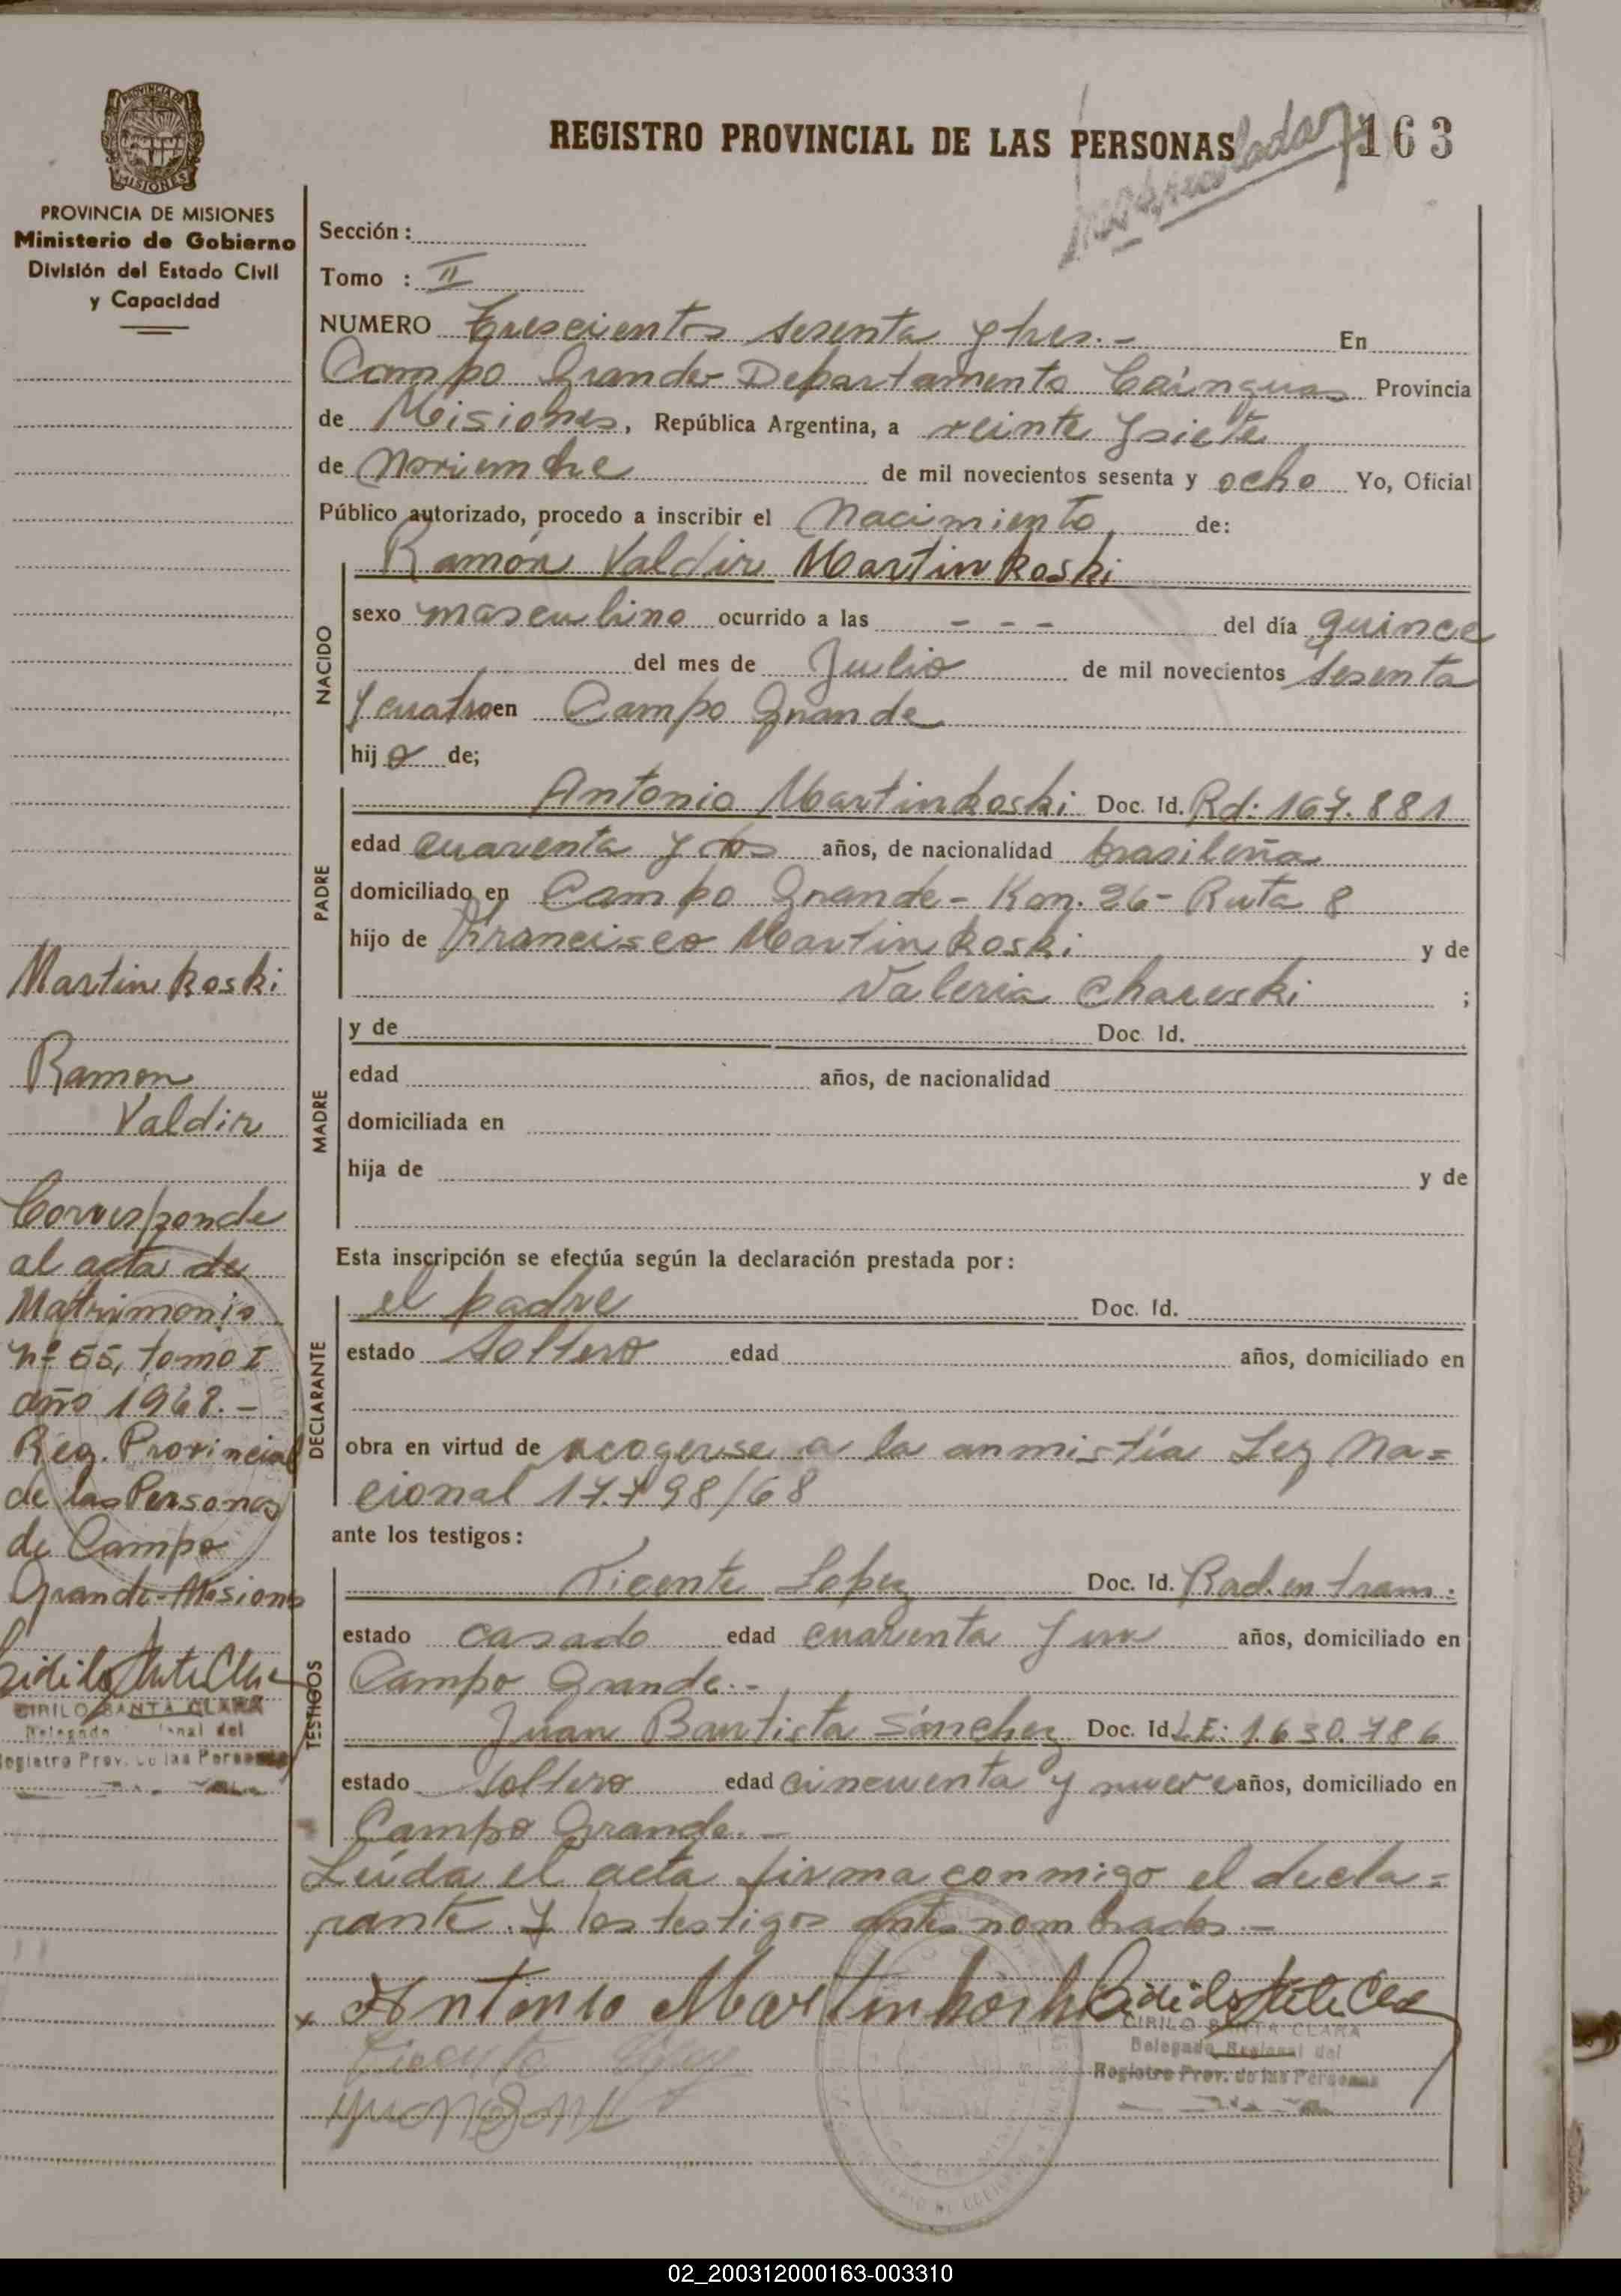 PROVINCIA DE MISIONES
PROVINCIA DE MISIONES
Ministerio de Gobierno
División del Estado Civil
y Capacidad
REGISTRO PROVINCIAL DE LAS PERSONAS
163
Sección :
Tomo : II
NUMERO Trescientos sesenta y tres.- En
Campo Grande Departamento Cainguas Provincia
de Misiones, República Argentina, a veinte y siete
de Noviembre de mil novecientos sesenta y ocho Yo, Oficial
Público autorizado, procedo a inscribir el Nacimiento de:
NACIDO
Ramón Valdir Martinkoski
sexo masculino ocurrido a las - - - del día quince
del mes de Julio de mil novecientos sesenta
y cuatro en Campo Grande
hijo de;
PADRE
Antonio Martinkoski Doc. Id. Rd: 167.881
edad cuarenta y dos años, de nacionalidad brasileña
domiciliado en Campo Grande - Km. 26 - Ruta 8
hijo de Francisco Martinkoski y de
Valeria Chareski ;
MADRE
y de Doc. Id.
edad años, de nacionalidad
domiciliada en
hija de y de
Esta inscripción se efectúa según la declaración prestada por :
DECLARANTE
el padre Doc. Id.
estado soltero edad años, domiciliado en
obra en virtud de acogerse a la anmistía Ley Na=
cional 17.798/68
ante los testigos :
TESTIGOS
Vicente Lopez Doc. Id. Rad. en tram:
estado casado edad cuarenta y un años, domiciliado en
Campo Grande.-
Juan Bautista Sánchez Doc. Id. L.E: 1.630.786
estado soltero edad cincuenta y nueve años, domiciliado en
Campo Grande.-
Leída el acta firma conmigo el decla=
rante y los testigos antes nombrados.-
x Antonio Martinkoski
CIRILO SANTA CLARA
Delegado Regional del
Registro Prov. de las Personas
Martinkoski
Ramon
Valdir
Corresponde
al acta de
Matrimonio
nº 55, tomo I
año 1968.-
Reg. Provincial
de las Personas
de Campo
Grande-Misiones
CIRILO SANTA CLARA
Delegado Regional del
Registro Prov. de las Personas
02_200312000163-003310